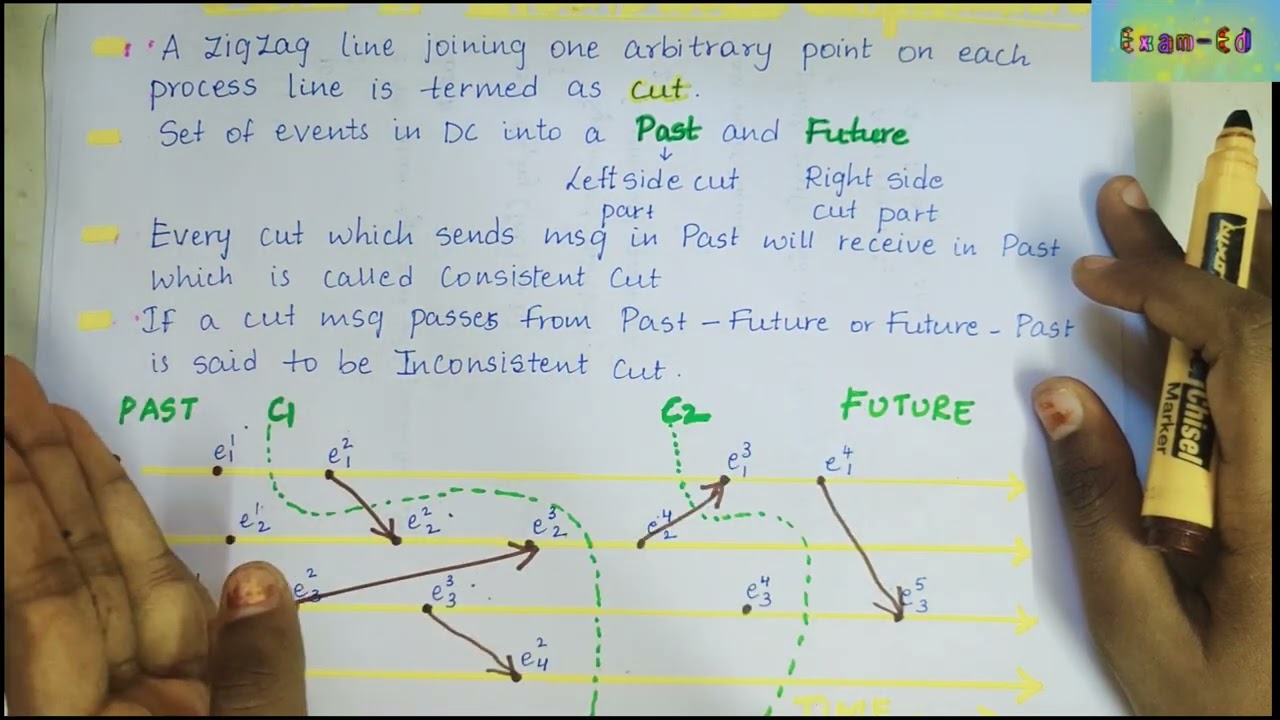 Exam-Ed
A zigzag line joining one arbitrary point on each
process line is termed as cut.
Set of events in DC into a Past and Future
↓
Left side cut Right side
part cut part
Every cut which sends msg in Past will receive in Past
which is called Consistent Cut
If a cut msg passes from Past - Future or Future - Past
is said to be Inconsistent Cut.
PAST C1 C2 FUTURE
e₁¹ e₁² e₁³ e₁⁴
e₂¹ e₂² e₂³ e₂⁴
e₃² e₃³ e₃⁴ e₃⁵
e₄²
TIME
Chisel
Marker